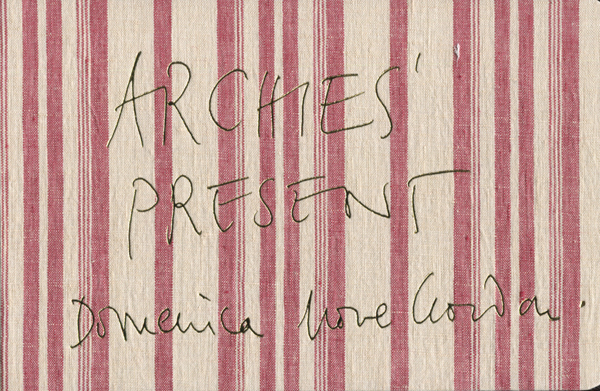 ARCHIES'
PRESENT
Domenica More Gordon.